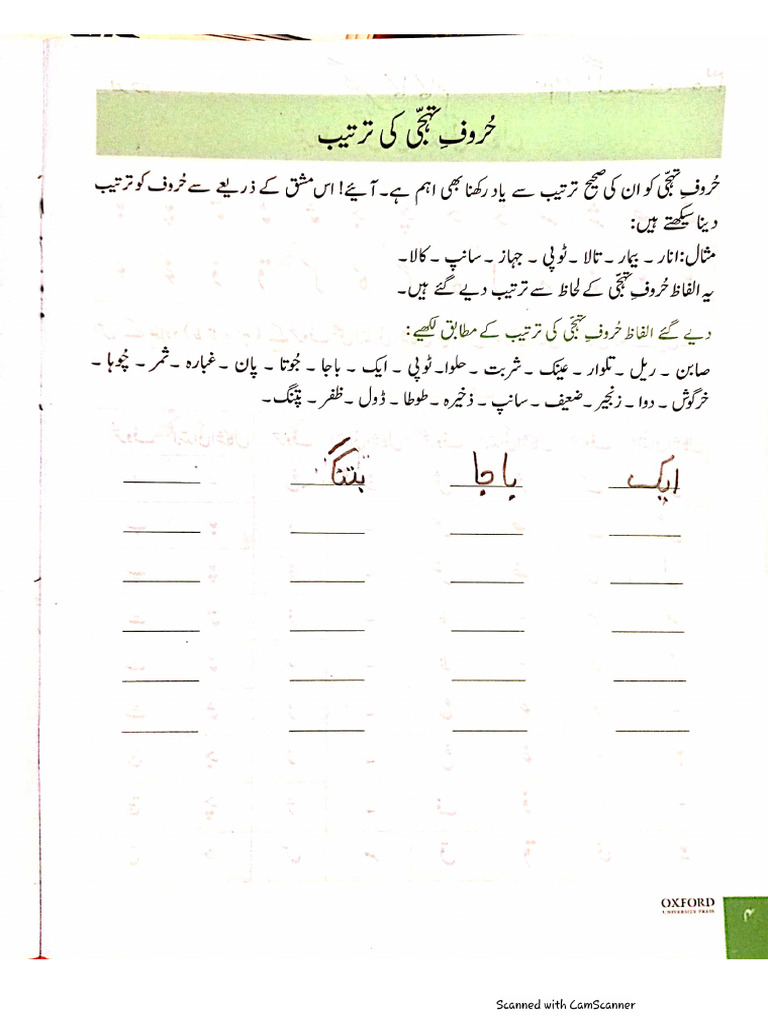 حُروفِ تہجّی کی ترتیب
حُروفِ تہجّی کو ان کی صحیح ترتیب سے یاد رکھنا بھی اہم ہے۔ آئیے! اس مشق کے ذریعے سے حُروف کو ترتیب
دینا سیکھتے ہیں:
مثال: انار ۔ بیمار ۔ تالا ۔ ٹوپی ۔ جہاز ۔ سانپ ۔ کالا۔
یہ الفاظ حُروفِ تہجّی کے لحاظ سے ترتیب دیے گئے ہیں۔
دیے گئے الفاظ حُروفِ تہجّی کی ترتیب کے مطابق لکھیے:
صابن ۔ ریل ۔ تلوار ۔ عینک ۔ شربت ۔ حلوا۔ ٹوپی ۔ ایک ۔ باجا ۔ جُوتا ۔ پان ۔ غبارہ ۔ ثمر ۔ چُوہا ۔
خرگوش ۔ دوا ۔ زنجیر ۔ ضعیف ۔ سانپ ۔ ذخیرہ ۔ طوطا ۔ ڈول ۔ ظفر ۔ پتنگ۔
ایک باجا پتنگ
OXFORD
UNIVERSITY PRESS
۴
Scanned with CamScanner